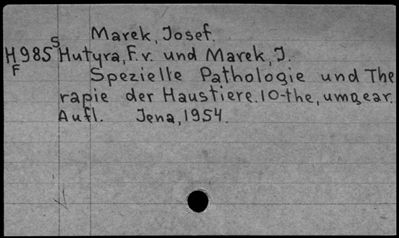 Marek, Josef.
H985 S Hutyra, F. v. und Marek, J.
F Spezielle Pathologie und The
rapie der Haustiere. 10-the, umgear.
Aufl. Jena, 1954.